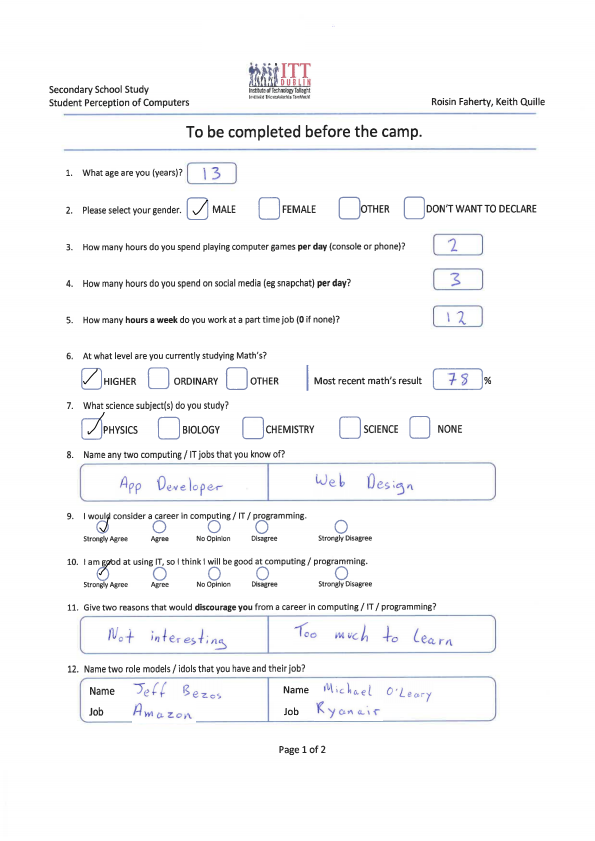 ITT
DUBLIN
Institute of Technology Tallaght
Secondary School Study
Student Perception of Computers
Roisin Faherty, Keith Quille
To be completed before the camp.
1. What age are you (years)? 13
2. Please select your gender. MALE FEMALE OTHER DON'T WANT TO DECLARE
3. How many hours do you spend playing computer games per day (console or phone)? 2
4. How many hours do you spend on social media (eg snapchat) per day? 3
5. How many hours a week do you work at a part time job (0 if none)? 12
6. At what level are you currently studying Math's?
HIGHER ORDINARY OTHER Most recent math's result 78 %
7. What science subject(s) do you study?
PHYSICS BIOLOGY CHEMISTRY SCIENCE NONE
8. Name any two computing / IT jobs that you know of?
App Developer Web Design
9. I would consider a career in computing / IT / programming.
Strongly Agree Agree No Opinion Disagree Strongly Disagree
10. I am good at using IT, so I think I will be good at computing / programming.
Strongly Agree Agree No Opinion Disagree Strongly Disagree
11. Give two reasons that would discourage you from a career in computing / IT / programming?
Not interesting Too much to learn
12. Name two role models / idols that you have and their job?
Name Jeff Bezos Name Michael O'Leary
Job Amazon Job Ryanair
Page 1 of 2